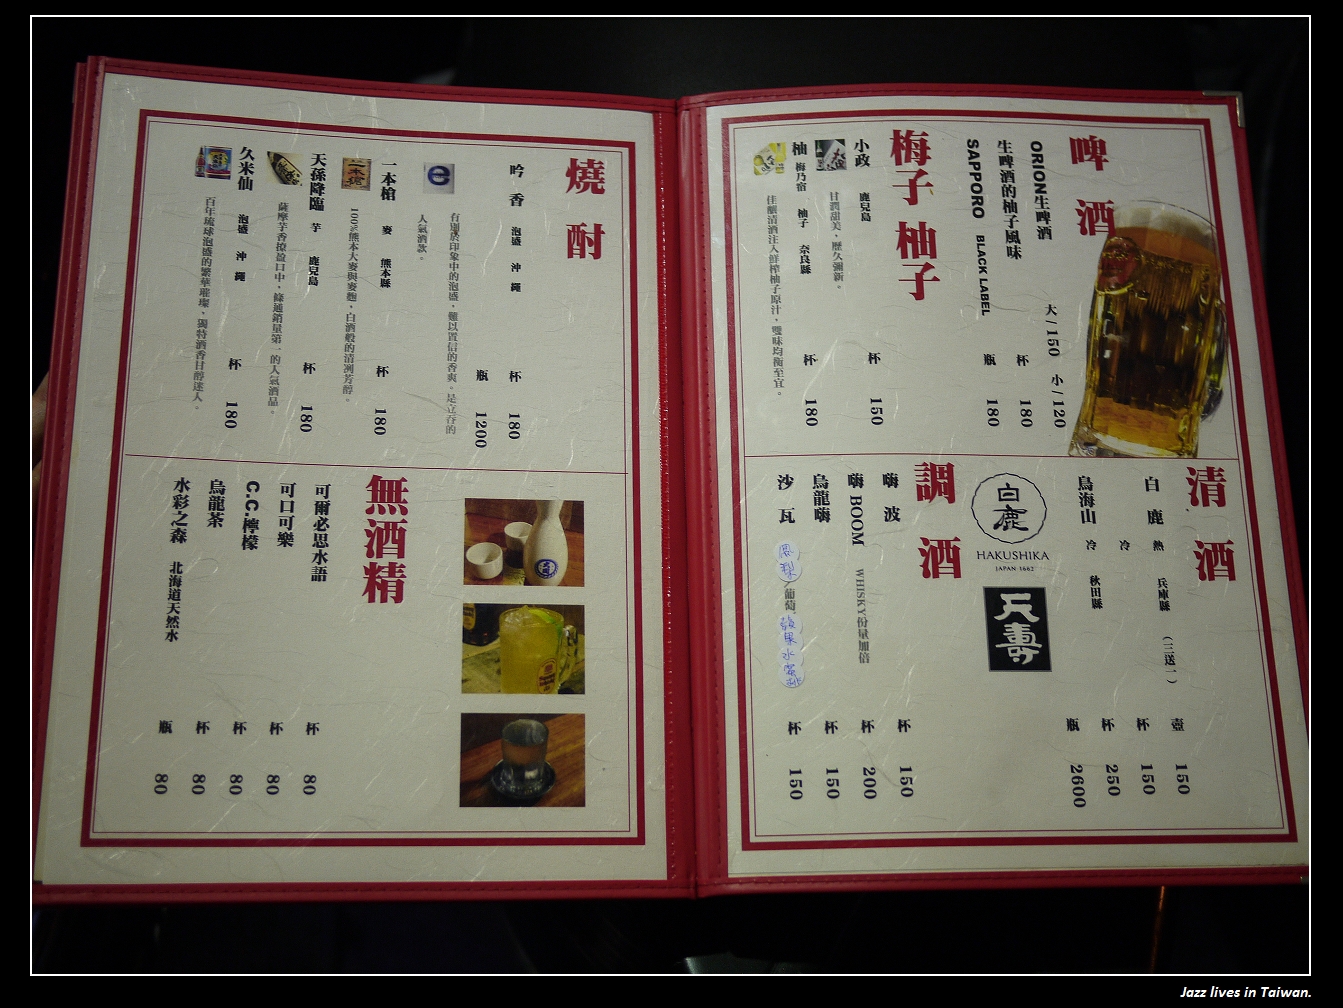 啤酒
ORION生啤酒
大/150 小/120
生啤酒的柚子風味 杯 180
SAPPORO BLACK LABEL 瓶 180
梅子 柚子
小政 鹿兒島 杯 150
甘潤甜美，歷久彌新。
柚 梅乃宿 柚子 奈良縣 杯 180
佳釀清酒注入鮮榨柚子原汁，雙味均衡至宜。
清酒
白鹿 熱 兵庫縣 (二送一) 壺 150
冷 杯 150
鳥海山 冷 秋田縣 杯 250
瓶 2600
白鹿
HAKUSHIKA
JAPAN 1662
天壽
調酒
嗨波 杯 150
嗨BOOM WHISKY份量加倍 杯 200
烏龍嗨 杯 150
沙瓦 鳳梨/葡萄 蘋果 水蜜桃 杯 150
燒酎
吟香 泡盛 沖繩 杯 180
瓶 1200
e
有別於印象中的泡盛，難以置信的香爽。是立吞的
人氣酒款。
一本槍 麥 熊本縣 杯 180
100%熊本大麥與麥麴，白酒般的清冽芳醇。
天孫降臨 芋 鹿兒島 杯 180
薩摩芋香撩盈口中，條通銷量第一的人氣酒品。
久米仙 泡盛 沖繩 杯 180
百年琉球泡盛的繁華璀璨，獨特酒香甘醇迷人。
無酒精
可爾必思水語 杯 80
可口可樂 杯 80
C.C.檸檬 杯 80
烏龍茶 杯 80
水彩之森 北海道天然水 瓶 80
Jazz lives in Taiwan.